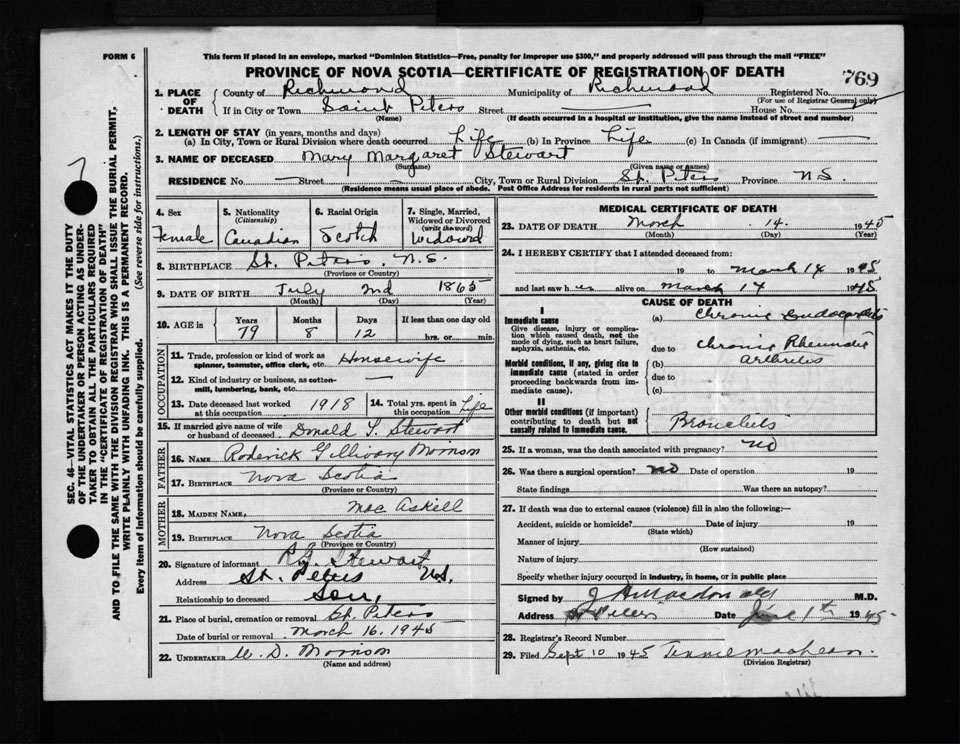 FORM 6
This form if placed in an envelope, marked "Dominion Statistics—Free, penalty for improper use $300," and properly addressed will pass through the mail "FREE"
PROVINCE OF NOVA SCOTIA—CERTIFICATE OF REGISTRATION OF DEATH
769
SEC. 46—VITAL STATISTICS ACT MAKES IT THE DUTY
OF THE UNDERTAKER OR PERSON ACTING AS UNDER-
TAKER TO OBTAIN ALL THE PARTICULARS REQUIRED
IN THE "CERTIFICATE OF REGISTRATION OF DEATH"
AND TO FILE THE SAME WITH THE DIVISION REGISTRAR WHO SHALL ISSUE THE BURIAL PERMIT.
WRITE PLAINLY WITH UNFADING INK. THIS IS A PERMANENT RECORD.
Every item of information should be carefully supplied. (See reverse side for instructions.)
7
1. PLACE OF DEATH
County of Richmond Municipality of Richmond Registered No.
(For use of Registrar General only)
If in City or Town Saint Peters Street — House No. —
(Name) (If death occurred in a hospital or institution, give the name instead of street and number)
2. LENGTH OF STAY (in years, months and days)
(a) In City, Town or Rural Division where death occurred Life (b) In Province Life (c) In Canada (if immigrant) —
3. NAME OF DECEASED Mary Margaret Stewart
(Surname) (Given name or names)
RESIDENCE No. — Street — City, Town or Rural Division St. Peters Province N.S.
(Residence means usual place of abode. Post Office Address for residents in rural parts not sufficient)
4. Sex
Female
5. Nationality
(Citizenship)
Canadian
6. Racial Origin
Scotch
7. Single, Married,
Widowed or Divorced
(write the word)
Widowed
8. BIRTHPLACE St. Peters, N.S.
(Province or Country)
9. DATE OF BIRTH July 2nd 1865
(Month) (Day) (Year)
10. AGE in Years Months Days If less than one day old
79 8 12 hrs. or min.
OCCUPATION
11. Trade, profession or kind of work as Housewife
spinner, teamster, office clerk, etc.
12. Kind of industry or business, as cotton- —
mill, lumbering, bank, etc.
13. Date deceased last worked 1918
at this occupation
14. Total yrs. spent in
this occupation Life
15. If married give name of wife
or husband of deceased Donald T. Stewart
FATHER
16. NAME Roderick Morrison
17. BIRTHPLACE Nova Scotia
(Province or Country)
MOTHER
18. MAIDEN NAME MacAskill
19. BIRTHPLACE Nova Scotia
(Province or Country)
20. Signature of informant Stewart
Address St. Peters N.S.
Relationship to deceased Son
21. Place of burial, cremation or removal St. Peters
Date of burial or removal March 16, 1945
22. UNDERTAKER W. D. Morrison
(Name and address)
MEDICAL CERTIFICATE OF DEATH
23. DATE OF DEATH March 14 1945
(Month) (Day) (Year)
24. I HEREBY CERTIFY that I attended deceased from:
19 to March 14 1945
and last saw her alive on March 14 1945
CAUSE OF DEATH
I
Immediate cause
Give disease, injury or complica-
tion which caused death, not the
mode of dying, such as heart failure,
asphyxia, asthenia, etc.
(a) Chronic Endocarditis
due to Chronic Rheumatic
Morbid conditions, if any, giving rise to
immediate cause (stated in order
proceeding backwards from im-
mediate cause).
(b) Arthritis
due to
(c)
II
Other morbid conditions (if important)
contributing to death but not
causally related to immediate cause.
Bronchitis
25. If a woman, was the death associated with pregnancy? No
26. Was there a surgical operation? No Date of operation 19
State findings Was there an autopsy?
27. If death was due to external causes (violence) fill in also the following:—
Accident, suicide or homicide? Date of injury 19
(State which)
Manner of injury
(How sustained)
Nature of injury
Specify whether injury occurred in industry, in home, or in public place
Signed by J A Macdonald M.D.
Address St Peters Date June 1th 1945
28. Registrar's Record Number
29. Filed Sept 10 1945 Tennie
(Division Registrar)